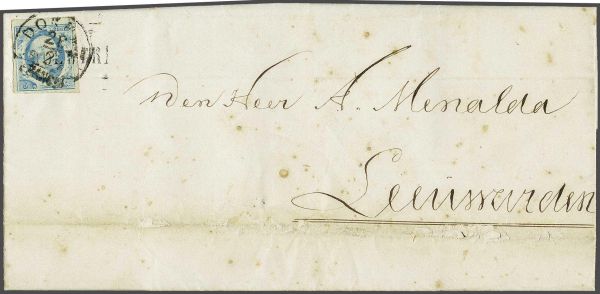 Den Heer A. Menalda
Leeuwarden